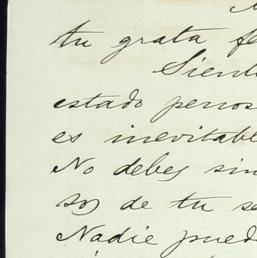 tu grata fe
Sient
estado penos
es inevitable
No debes sin
so de tu se
Nadie pued